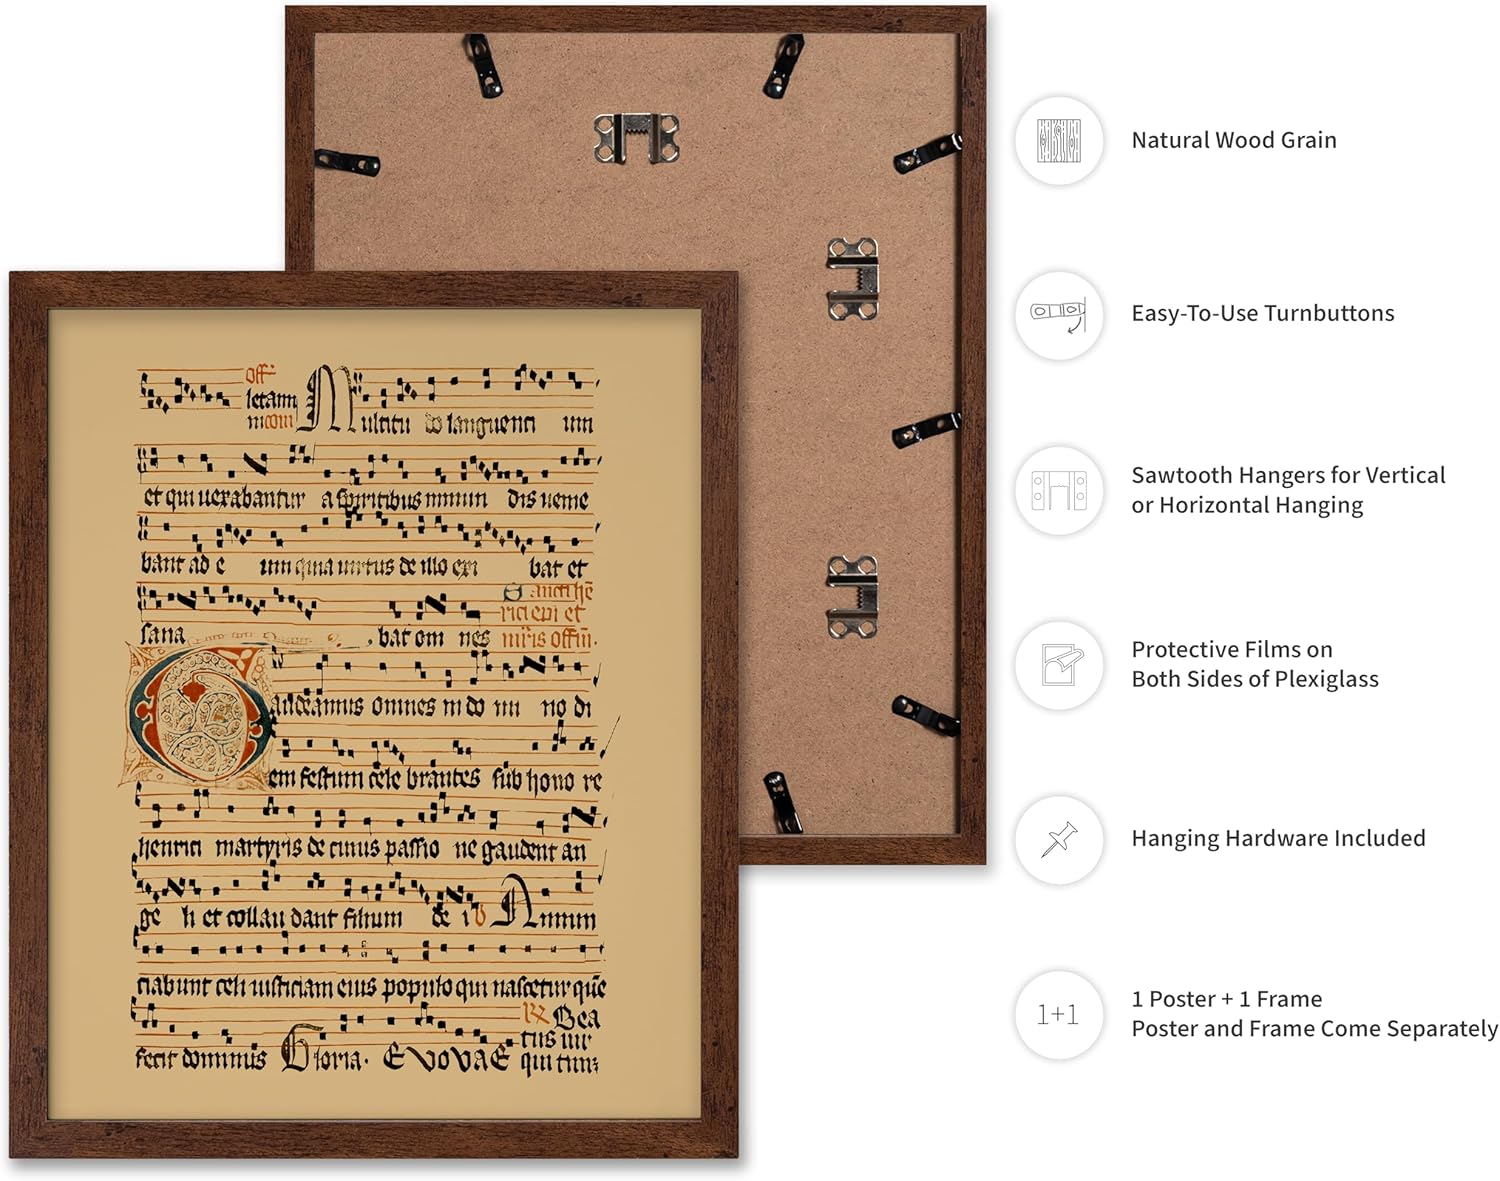 off
letann
Multitu do languenti um
et qui uexabantur a spiritibus inmun dis ueme
bant ad e um quia uirtus de illo exi bat et
Sancti he
rici epi et
sana bat om nes mris offm.
Gaudeamus omnes in do mi no di
em festum cele brantes sub hono re
henrici martyris de cuius passio ne gaudent an
ge li et collau dant filium de i V Annun
ciabunt celi iusticiam eius populo qui nascetur que
Bea
tus uir
fecit dominus Gloria. EVOVAE qui tim
Natural Wood Grain
Easy-To-Use Turnbuttons
Sawtooth Hangers for Vertical
or Horizontal Hanging
Protective Films on
Both Sides of Plexiglass
Hanging Hardware Included
1+1
1 Poster + 1 Frame
Poster and Frame Come Separately